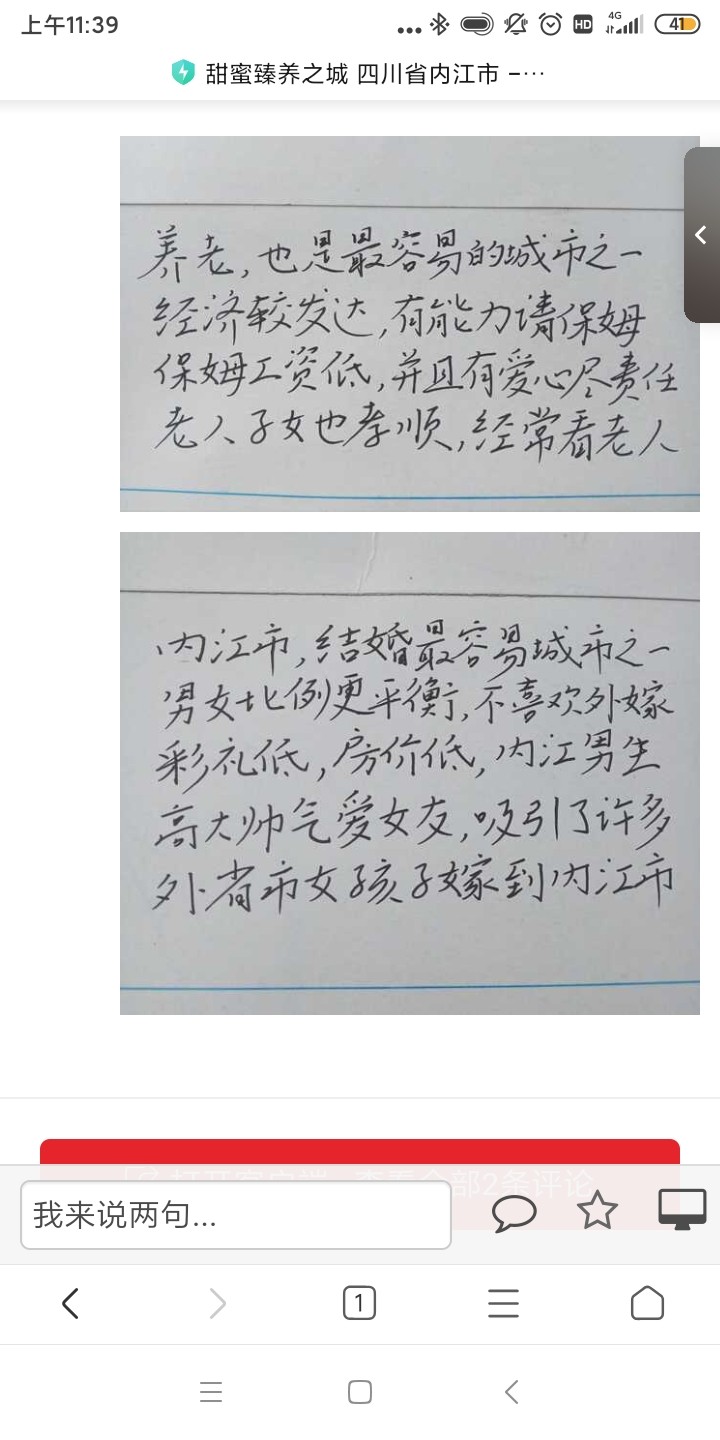 上午11:39
4G
HD
41
甜蜜臻养之城 四川省内江市 -…
养老,也是最容易的城市之一
经济较发达,有能力请保姆
保姆工资低,并且有爱心尽责任
老人子女也孝顺,经常看老人
内江市,结婚最容易城市之一
男女比例更平衡,不喜欢外嫁
彩礼低,房价低,内江男生
高大帅气爱女友,吸引了许多
外省市女孩子嫁到内江市
打开客户端 查看全部2条评论
我来说两句...
1